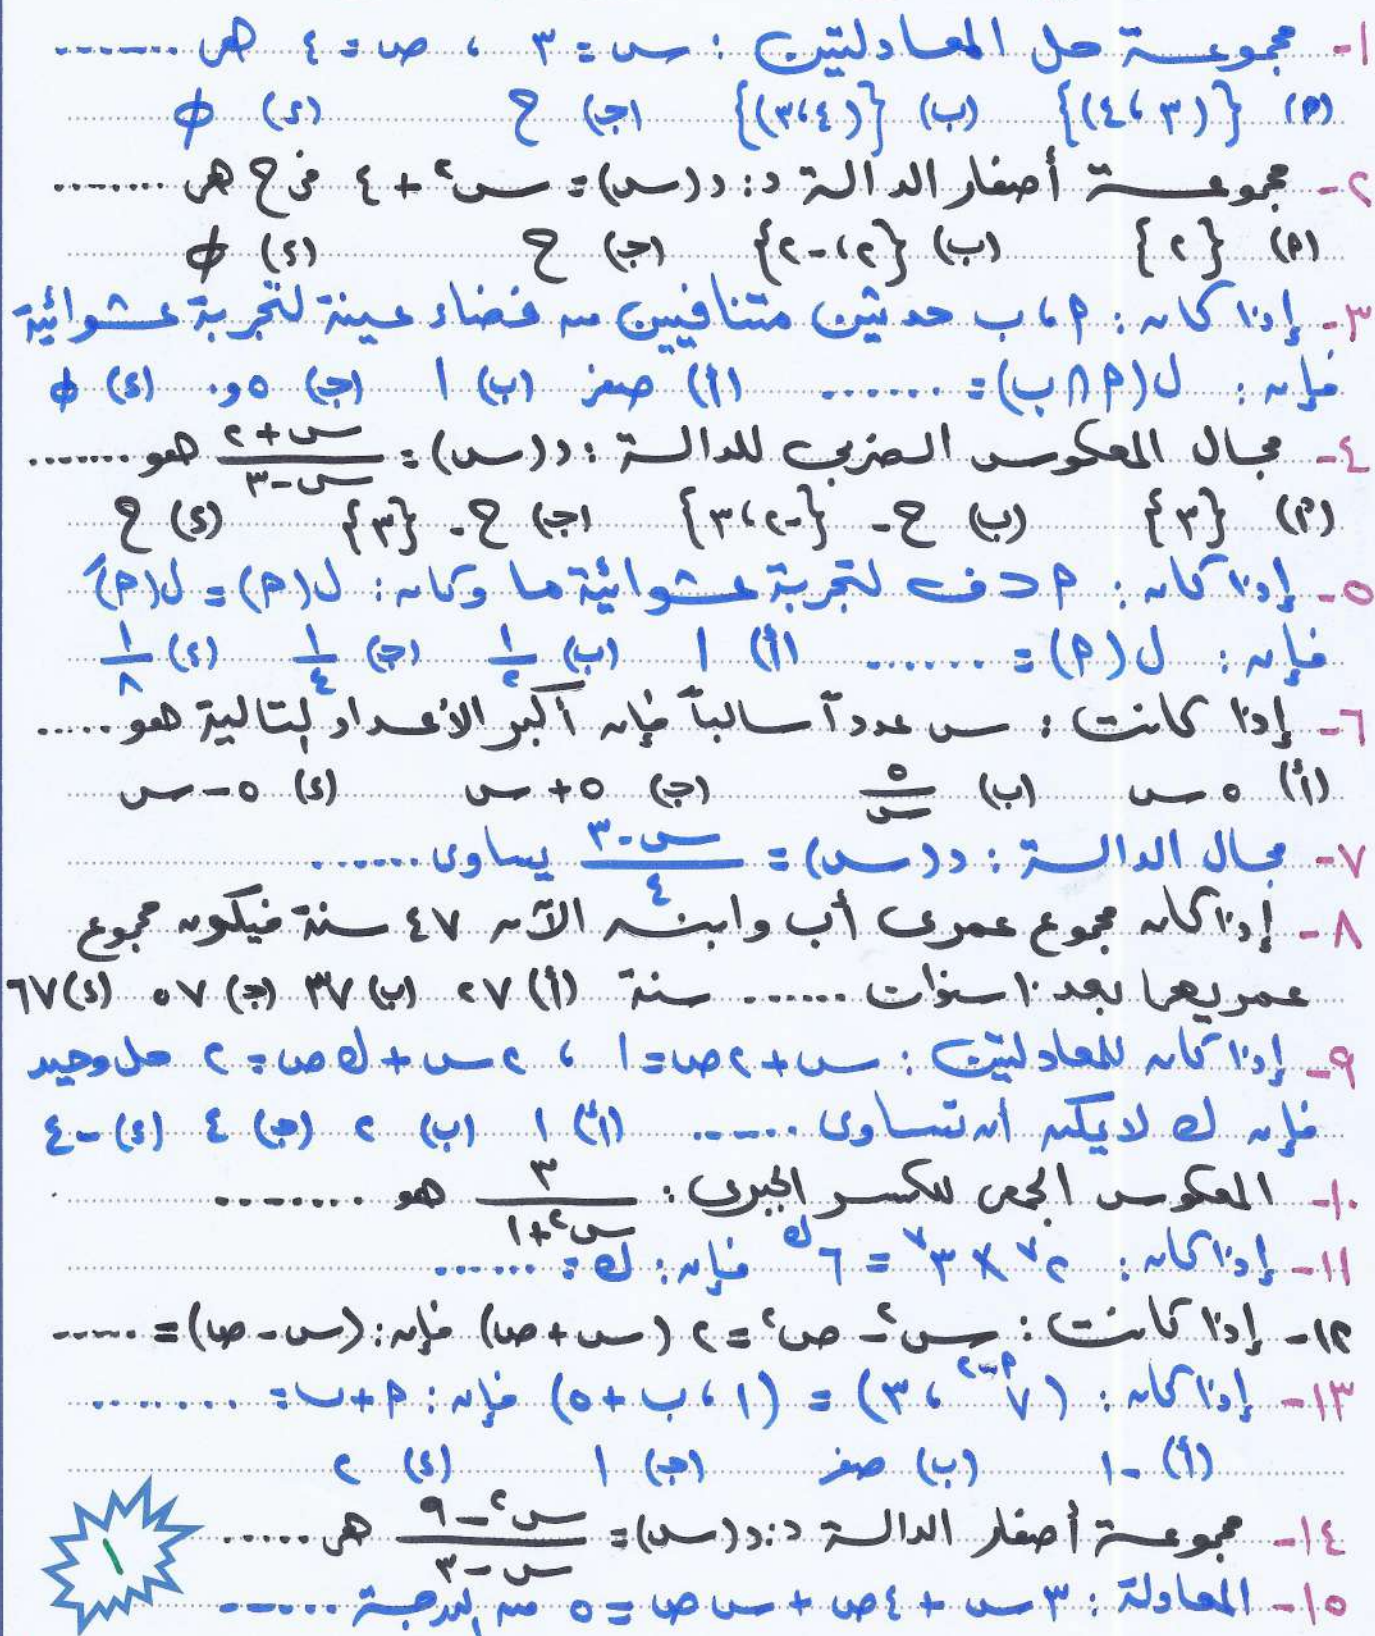 ١- مجموعة حل المعادلتين : س = ٣ ، ص = ٤ هى .......
(P) {(٣ ، ٤)} (ب) {(٤ ، ٣)} (ج) ح (د) ϕ
٢- مجموعة أصفار الدالة د : د(س) = س٢ + ٤ فى ح هى ........
(P) {٢} (ب) {٢ ، -٢} (ج) ح (د) ϕ
٣- إذا كان : P ، ب حدثين متنافيين من فضاء عينة لتجربة عشوائية
فإن : ل(P ∩ ب) = ....... (أ) صفر (ب) ١ (ج) ٥و٠ (د) ϕ
٤- مجال المعكوس الضربى للدالة : د(س) = (س + ٢)/(س - ٣) هو .......
(P) {٣} (ب) ح - {-٢ ، ٣} (ج) ح - {٣} (د) ح
٥- إذا كان : P ⊂ ف لتجربة عشوائية ما وكان : ل(P) = ل(P)َ
فإن : ل(P) = ....... (أ) ١ (ب) ١/٢ (ج) ١/٤ (د) ١/٨
٦- إذا كانت : س عدداً سالباً فإن أكبر الأعداد التالية هو .....
(أ) ٥ س (ب) ٥/س (ج) ٥ + س (د) ٥ - س
٧- مجال الدالة : د(س) = (س - ٣)/٤ يساوى ......
٨- إذا كان مجموع عمرى أب وابنه الآن ٤٧ سنة فيكون مجموع
عمريهما بعد ١٠ سنوات ...... سنة (أ) ٢٧ (ب) ٣٧ (ج) ٥٧ (د) ٦٧
٩- إذا كان للمعادلتين : س + ٢ص = ١ ، ٢س + ك ص = ٢ حل وحيد
فإن ك لا يمكن أن تساوى ...... (أ) ١ (ب) ٢ (ج) ٤ (د) -٤
١٠- المعكوس الجمعى للكسر الجبرى : ٣/(س٢ + ١) هو ........
١١- إذا كان : ٢^٧ × ٣^٧ = ٦^ك فإن : ك = ......
١٢- إذا كانت : س٢ - ص٢ = ٢ (س + ص) فإن : (س - ص) = ......
١٣- إذا كان : (٧^(P-٢) ، ٣) = (١ ، ب + ٥) فإن : P + ب = ........
(أ) -١ (ب) صفر (ج) ١ (د) ٢
١٤- مجموعة أصفار الدالة د : د(س) = (س٢ - ٩)/(س - ٣) هى ......
١٥- المعادلة : ٣س + ٤ص + س ص = ٥ من الدرجة ......
١